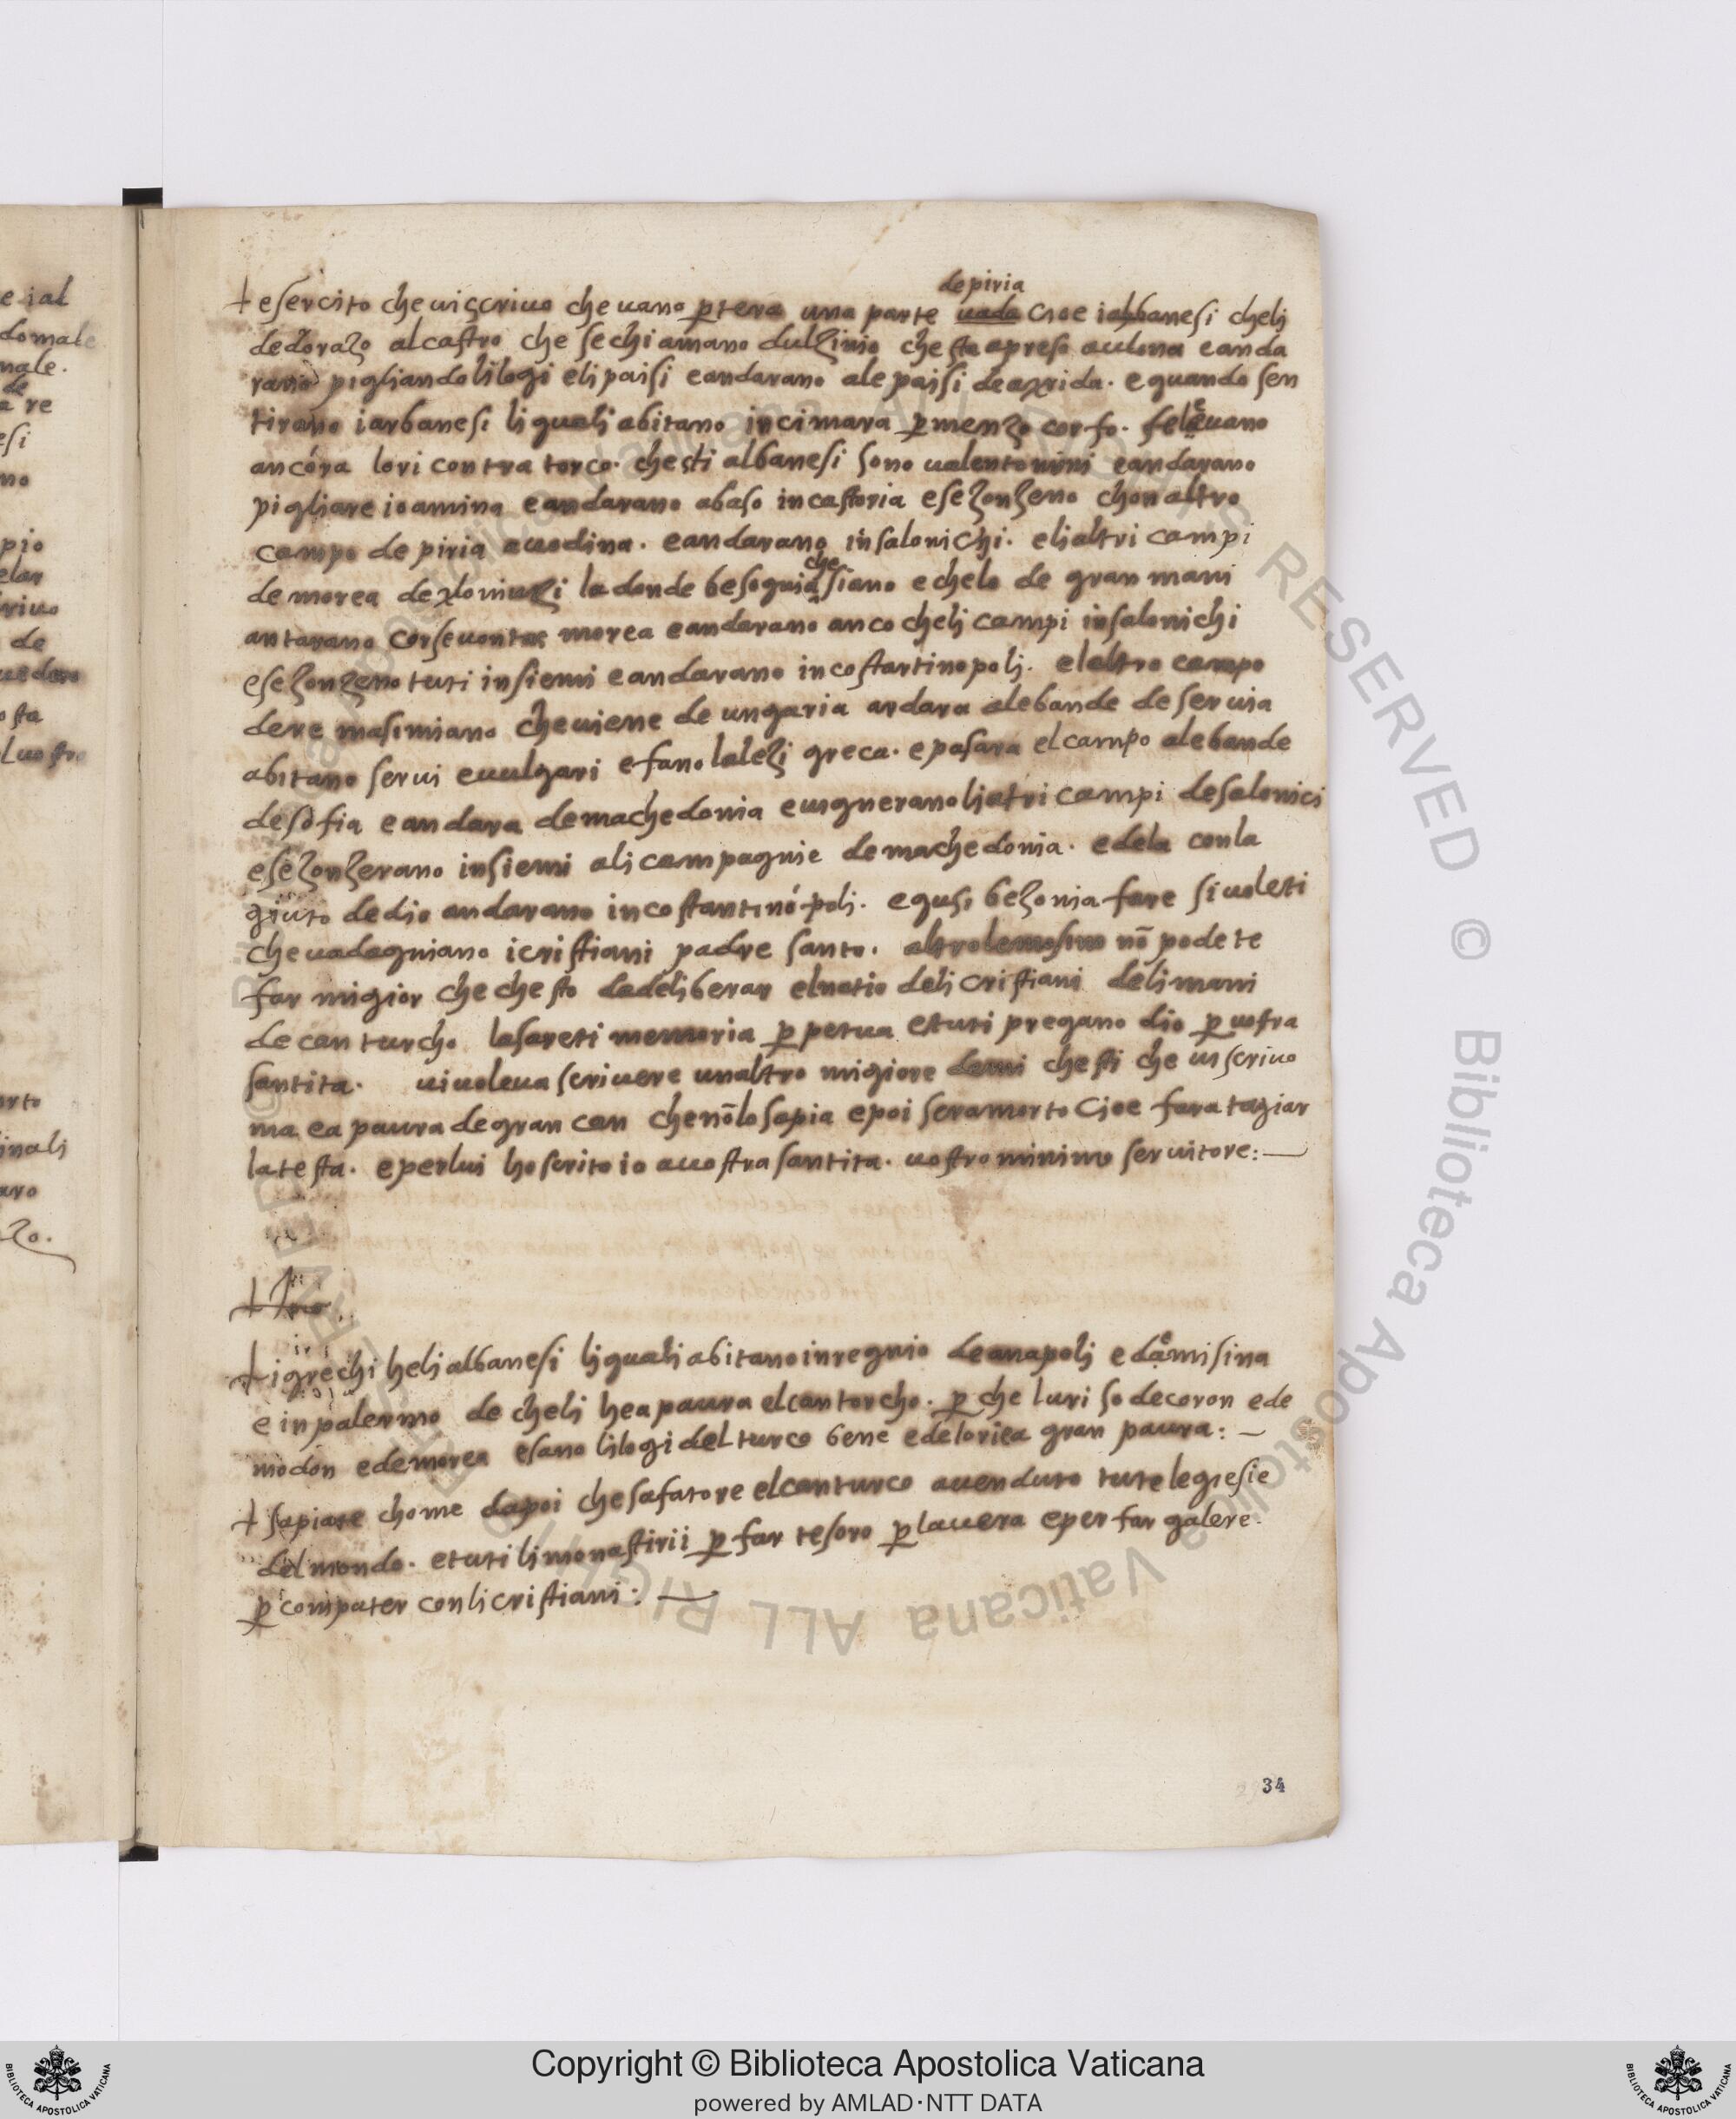 de piria
+ esercito che ui scriuo che uano ꝑ tera una parte uada cioe i albanesi chelj
de dorazo al castro che se chiamano dulzinio che sta apreso aulona e anda
rano pigliando li logi eli paisi e andarano ale paisi de
e quando sen
tirano i arbanesi li qualj abitano in cimara ꝑ menzo corfo. se leuano
ancóra lori contra torco. chesti albanesi sono ualentomini e andarano
pigliare ioamina e andarano abaso in castoria e se zonzeno chon altro
campo de piria auodina. e andarano in salonichi. eli altri campi
che
de morea de
la donde besognia siano e chelo de gran mani
antarano
morea e andarano anco chelj campi in salonichi
e se zonzeno tuti insiemi e andarano in costantinopolj. el altro campo
de re masimiano che uiene de ungaria andara ale bande de seruia
abitano serui e uulgari e fano la lezi greca. e pasara el campo ale bande
de sòfia e andara de machedonia e uignerano lj atri campi de salonici
e se zonzerano insiemi alj campagnie de machedonia. e dela con la
giuto de dio andarano in costantinópolj. e qusi bezonia fare si uoleti
che uadagniano i cristiani padre santo. altro lemosino nō podete
far migior che chesto de deliberar el natio deli cristiani deli mani
de can turcho lasareti memoria ꝑpetua e tuti pregano dio ꝑ uostra
santita. ui uoleua scriuere un altro migiore de mi chesti che ui scriuo
ma ea paura de gran can che nō lo sapia e poi sera morto cioe fara tagiar
la testa. e per lui ho scrito io a uostra santita. uostro minimo seruitore:—
+
+ i grechi helj albanesi lj qualj abitano in regnio de anapolj e de misina
e in palermo de chelj hea paura el can torcho. ꝑche luri so de coron e de
modon e de morea e sano li logi del turco bene e de lori ea gran paura:—
+ sapiate chome dapoi che sa fato re el can turco a uenduto tute le giesie
del mondo. e tuti lj monastirii ꝑ far tesoro ꝑ la uera e per far galere.
ꝑ compater con li cristiani:—
34
Copyright © Biblioteca Apostolica Vaticana
powered by AMLAD·NTT DATA